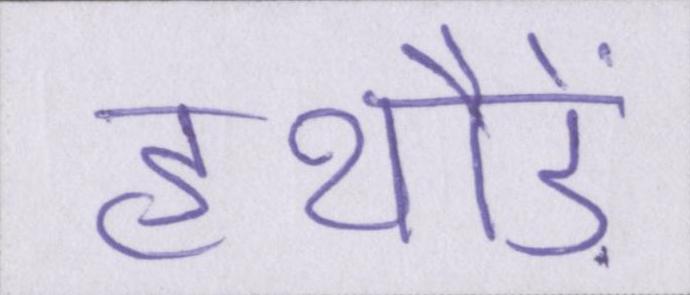 हथौड़ें